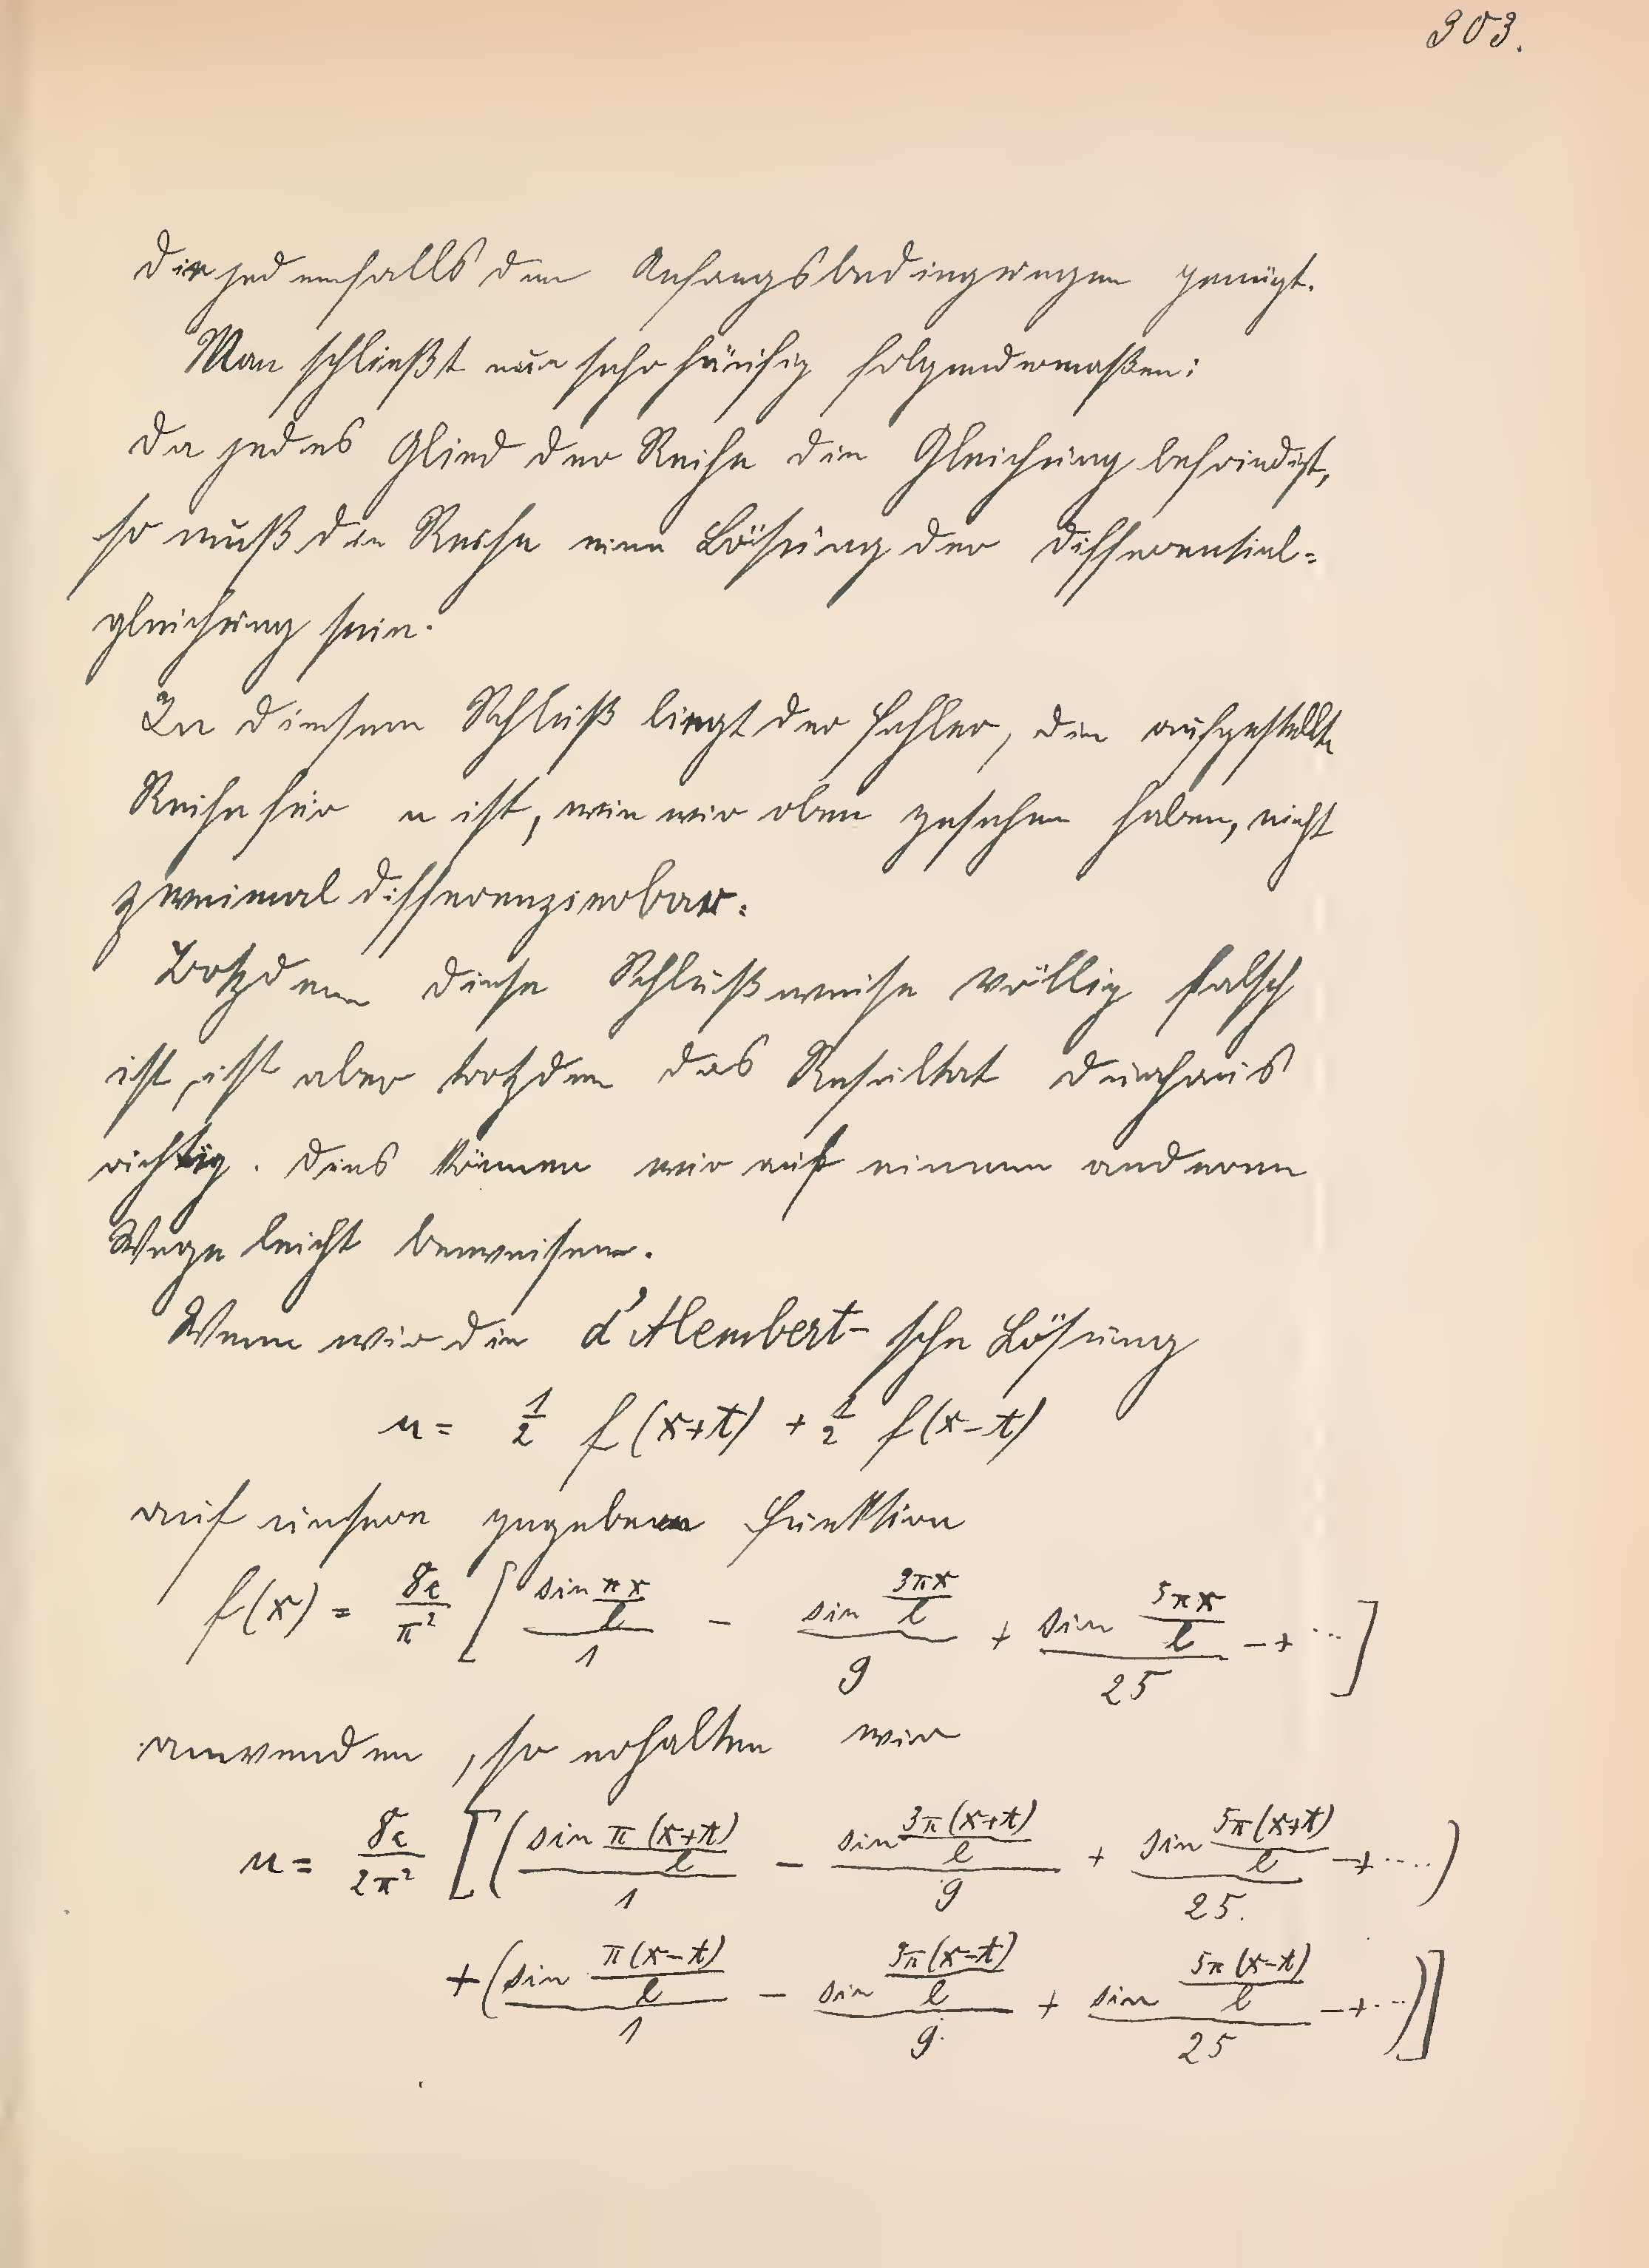 303.
die jedenfalls den Anfangsbedingungen genügt.
Man schließt nun sehr häufig folgendermaßen:
Da jedes Glied der Reihe die Gleichung befriedigt,
so muß die Reihe eine Lösung der Differential-
gleichung sein.
In diesem Schluß liegt der Fehler, die aufgestellte
Reihe für u ist, wie wir oben gesehen haben, nicht
zweimal differenzierbar.
Trotzdem diese Schlußweise völlig falsch
ist, ist aber trotzdem das Resultat durchaus
richtig. Dies können wir auf einem anderen
Wege leicht beweisen.
Wenn wir die d'Alembert-sche Lösung
u = 1/2 f(x+t) + 1/2 f(x-t)
auf unsere gegebene Funktion
f(x) = 8c/π² [ (sin πx/l)/1 - (sin 3πx/l)/9 + (sin 5πx/l)/25 -+ ... ]
anwenden, so erhalten wir
u = 8c/2π² [ ( (sin π(x+t)/l)/1 - (sin 3π(x+t)/l)/9 + (sin 5π(x+t)/l)/25. -+ .... )
+ ( (sin π(x-t)/l)/1 - (sin 3π(x-t)/l)/9. + (sin 5π(x-t)/l)/25 -+ ... ) ]